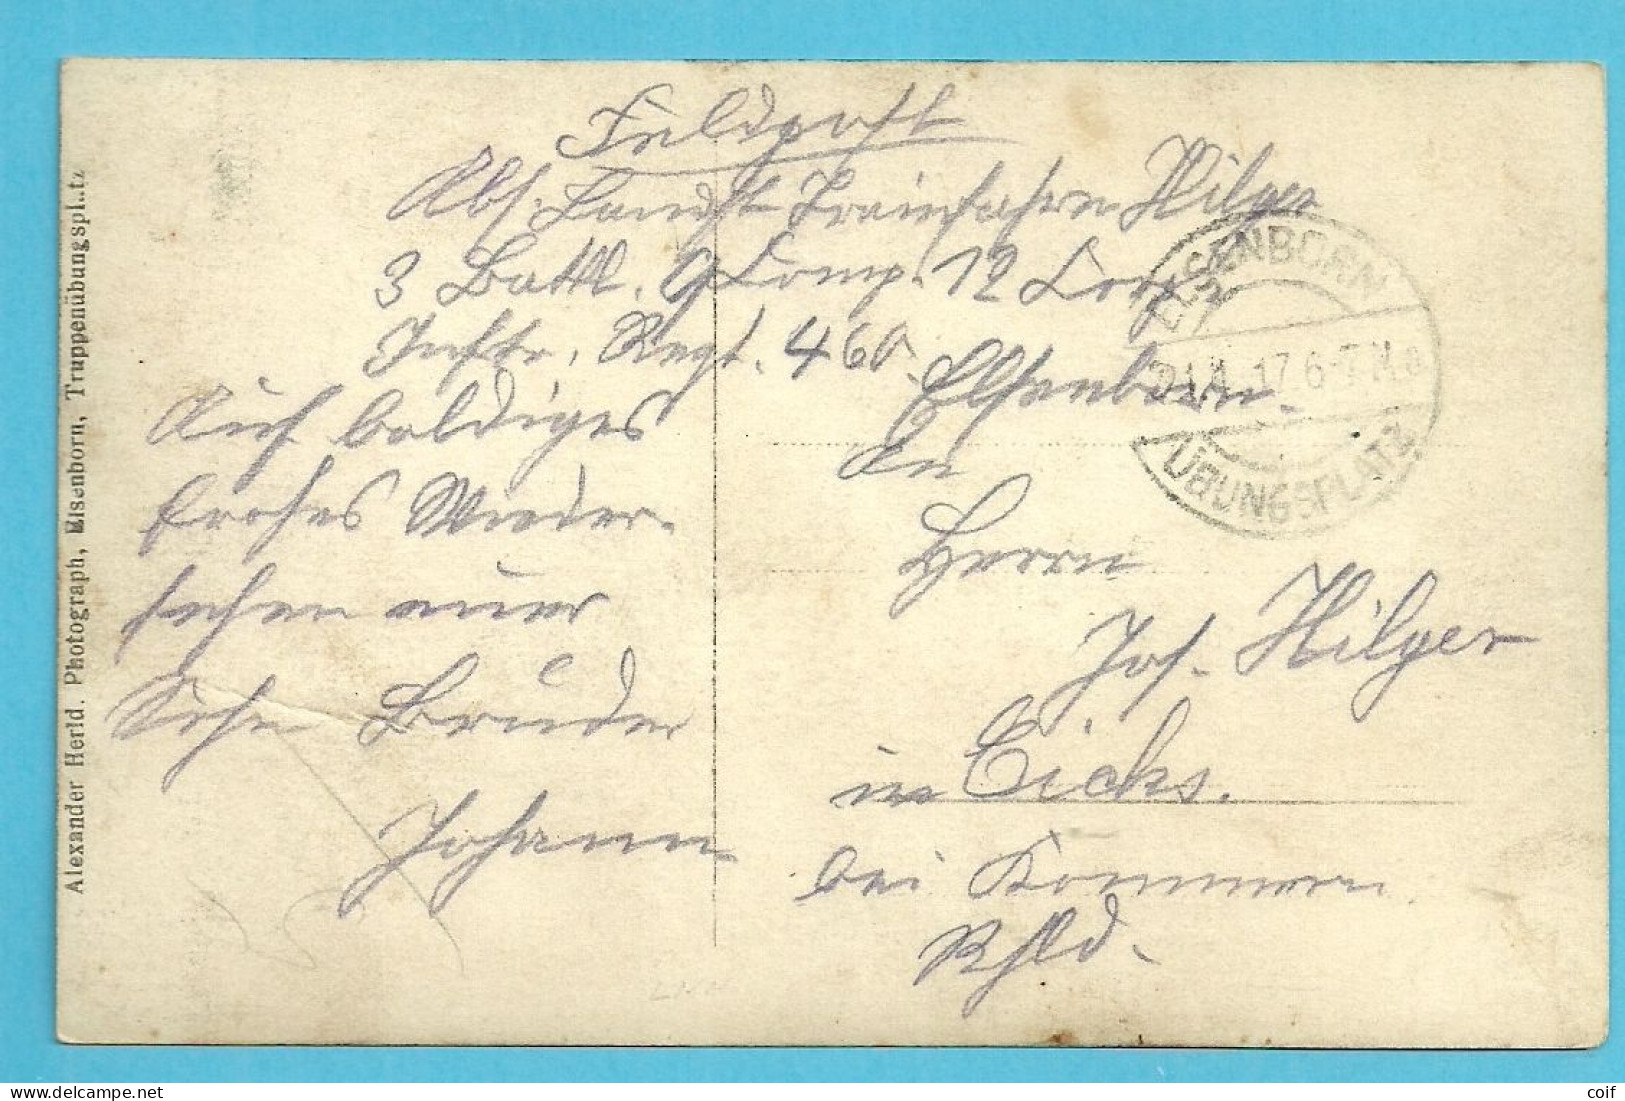 Feldpost
Abs. Landst. Trainfahrer Hilger
3 Battl. 9 Comp. 12 Corp.
Inftr. Regt. 460. Elsenborn.
ELSENBORN
17 6-7 N.
ÜBUNGSPLATZ
Auf baldiges
frohes Wieder-
sehen euer
Bruder
Johann
An
Herrn
Jos. Hilger
in Eicks.
bei Kommern
Rhld.
Alexander Herld. Photograph, Elsenborn, Truppenübungsplatz
coif